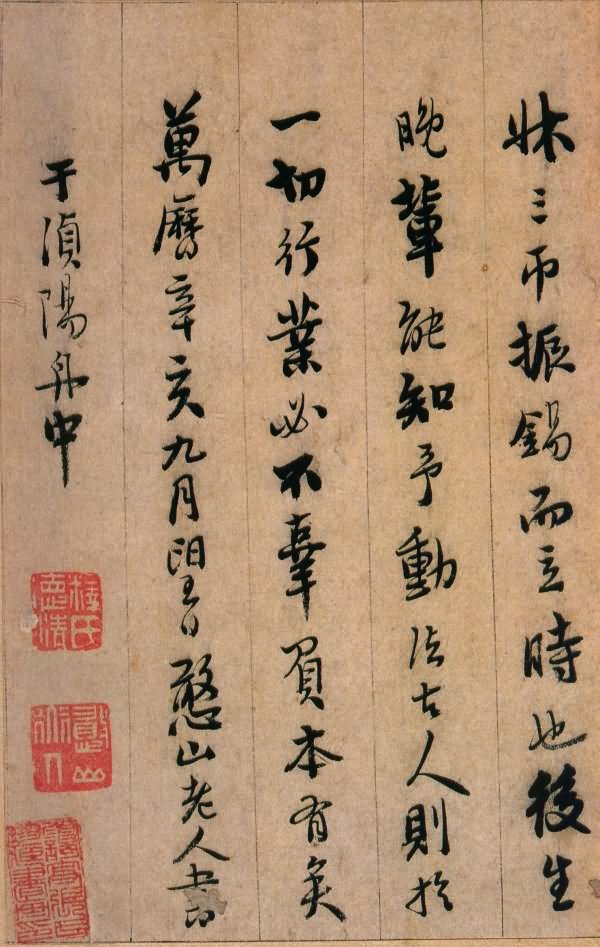 牀三帀振錫而立時也後生
晚輩能知予動法古人則於
一切行業必不辜負本有矣
萬曆辛亥九月望日憨山老人書
于湞陽舟中
釋氏
悳清